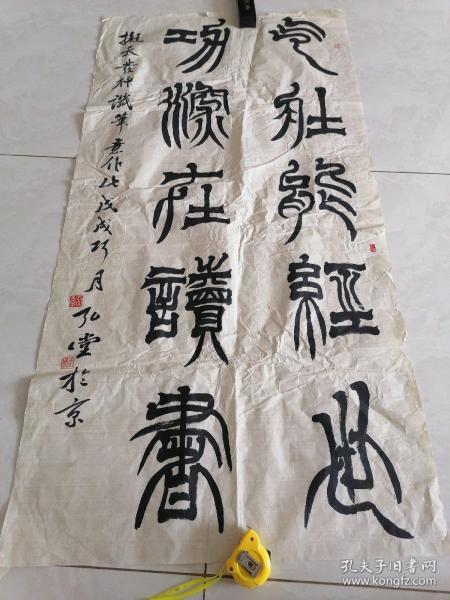 气壮能经世
功深在读書
拟天发神谶筆意作此戊戌巧月弘堂於京
孔夫子旧書网
www.kongfz.com